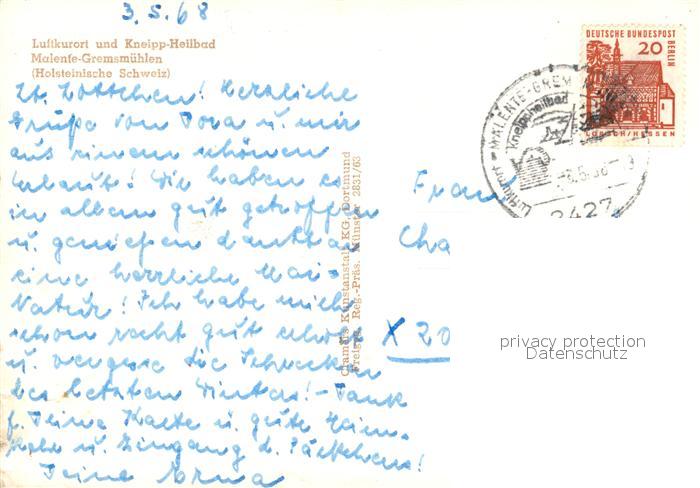 3.5.68
Luftkurort und Kneipp-Heilbad
Malente-Gremsmühlen
(Holsteinische Schweiz)
Lb. Lottchen! Herzliche
Grüße von Dora u. mir
aus einem schönen
Urlaub! Wir haben es
in allem gut getroffen
u. genießen dankbar
eine herrliche Mai-
Natur! Ich habe mich
schon recht gut erholt
u. vergesse die Schrecken
des letzten Winters! - Dank
f. Deine Karte u. gute Heim-
kehr u. Eingang d. Päckchens!
Deine Erna
Cramers Kunstanstalt KG, Dortmund
Preis Reg.-Präs. Münster 2831/63
DEUTSCHE BUNDESPOST
BERLIN
20
LORSCH/HESSEN
MALENTE-GREM
Kneippheilbad
Luftkurort
2427
Frau
Cha
X 20
privacy protection
Datenschutz